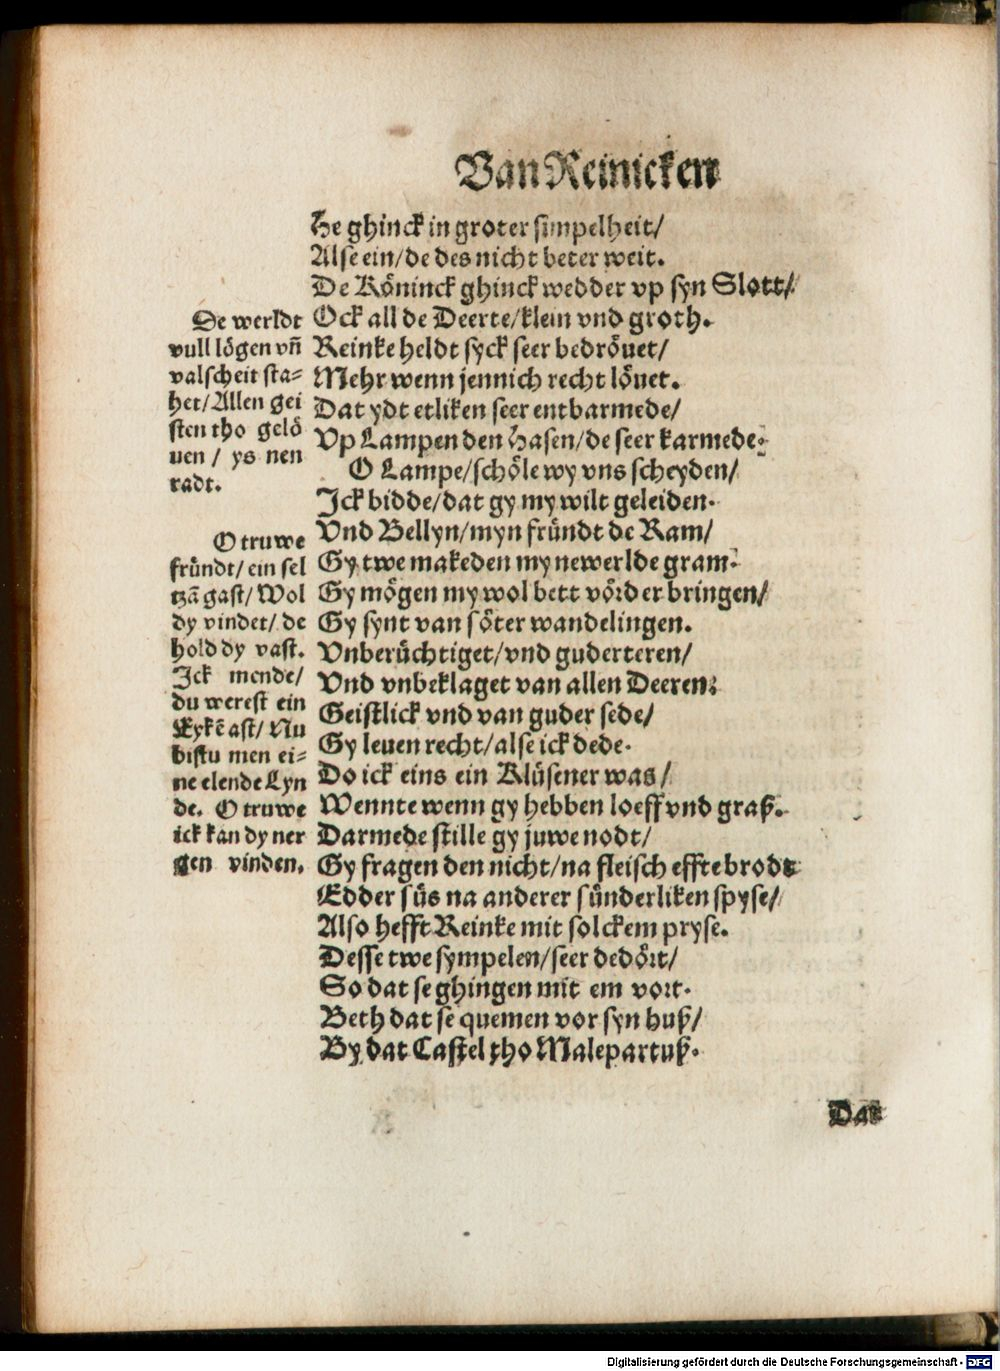 Van Reinicken
He ghinck in groter simpelheit/
Alse ein/de des nicht beter weit.
De Köninck ghinck wedder vp syn Slott/
Ock all de Deerte/klein vnd groth.
Reinke heldt syck seer bedröuet/
Mehr wenn jennich recht löuet.
Dat ydt etliken seer entbarmede/
Vp Lampen den Hasen/de seer karmede:
O Lampe/schöle wy vns scheyden/
Ick bidde/dat gy my wilt geleiden.
Vnd Bellyn/myn fründt de Ram/
Gy twe makeden my newerlde gram.
Gy mögen my wol bett vörder bringen/
Gy synt van söter wandelingen.
Vnberüchtiget/vnd guderteren/
Vnd vnbeklaget van allen Deeren:
Geistlick vnd van guder sede/
Gy leuen recht/alse ick dede.
Do ick eins ein Klüsener was/
Wennte wenn gy hebben loeff vnd graß.
Darmede stille gy juwe nodt/
Gy fragen den nicht/na fleisch effte brodt
Edder süs na anderer sünderliken spyse/
Also hefft Reinke mit solckem pryse.
Desse twe sympelen/seer dedört/
So dat se ghingen mit em vort.
Beth dat se quemen vor syn huß/
By dat Castel tho Malepartuß.
De werldt
vull lögen vñ
valscheit sta=
het/Allen gei
sten tho gelö
uen / ys nen
radt.
O truwe
fründt/ein sel
tzã gast/Wol
dy vindet/de
hold dy vast.
Ick mende/
du werest ein
Eykẽ ast/Nu
bistu men ei=
ne elende Lyn
de. O truwe
ick kan dy ner
gen vinden.
Dat
Digitalisierung gefördert durch die Deutsche Forschungsgemeinschaft - DFG